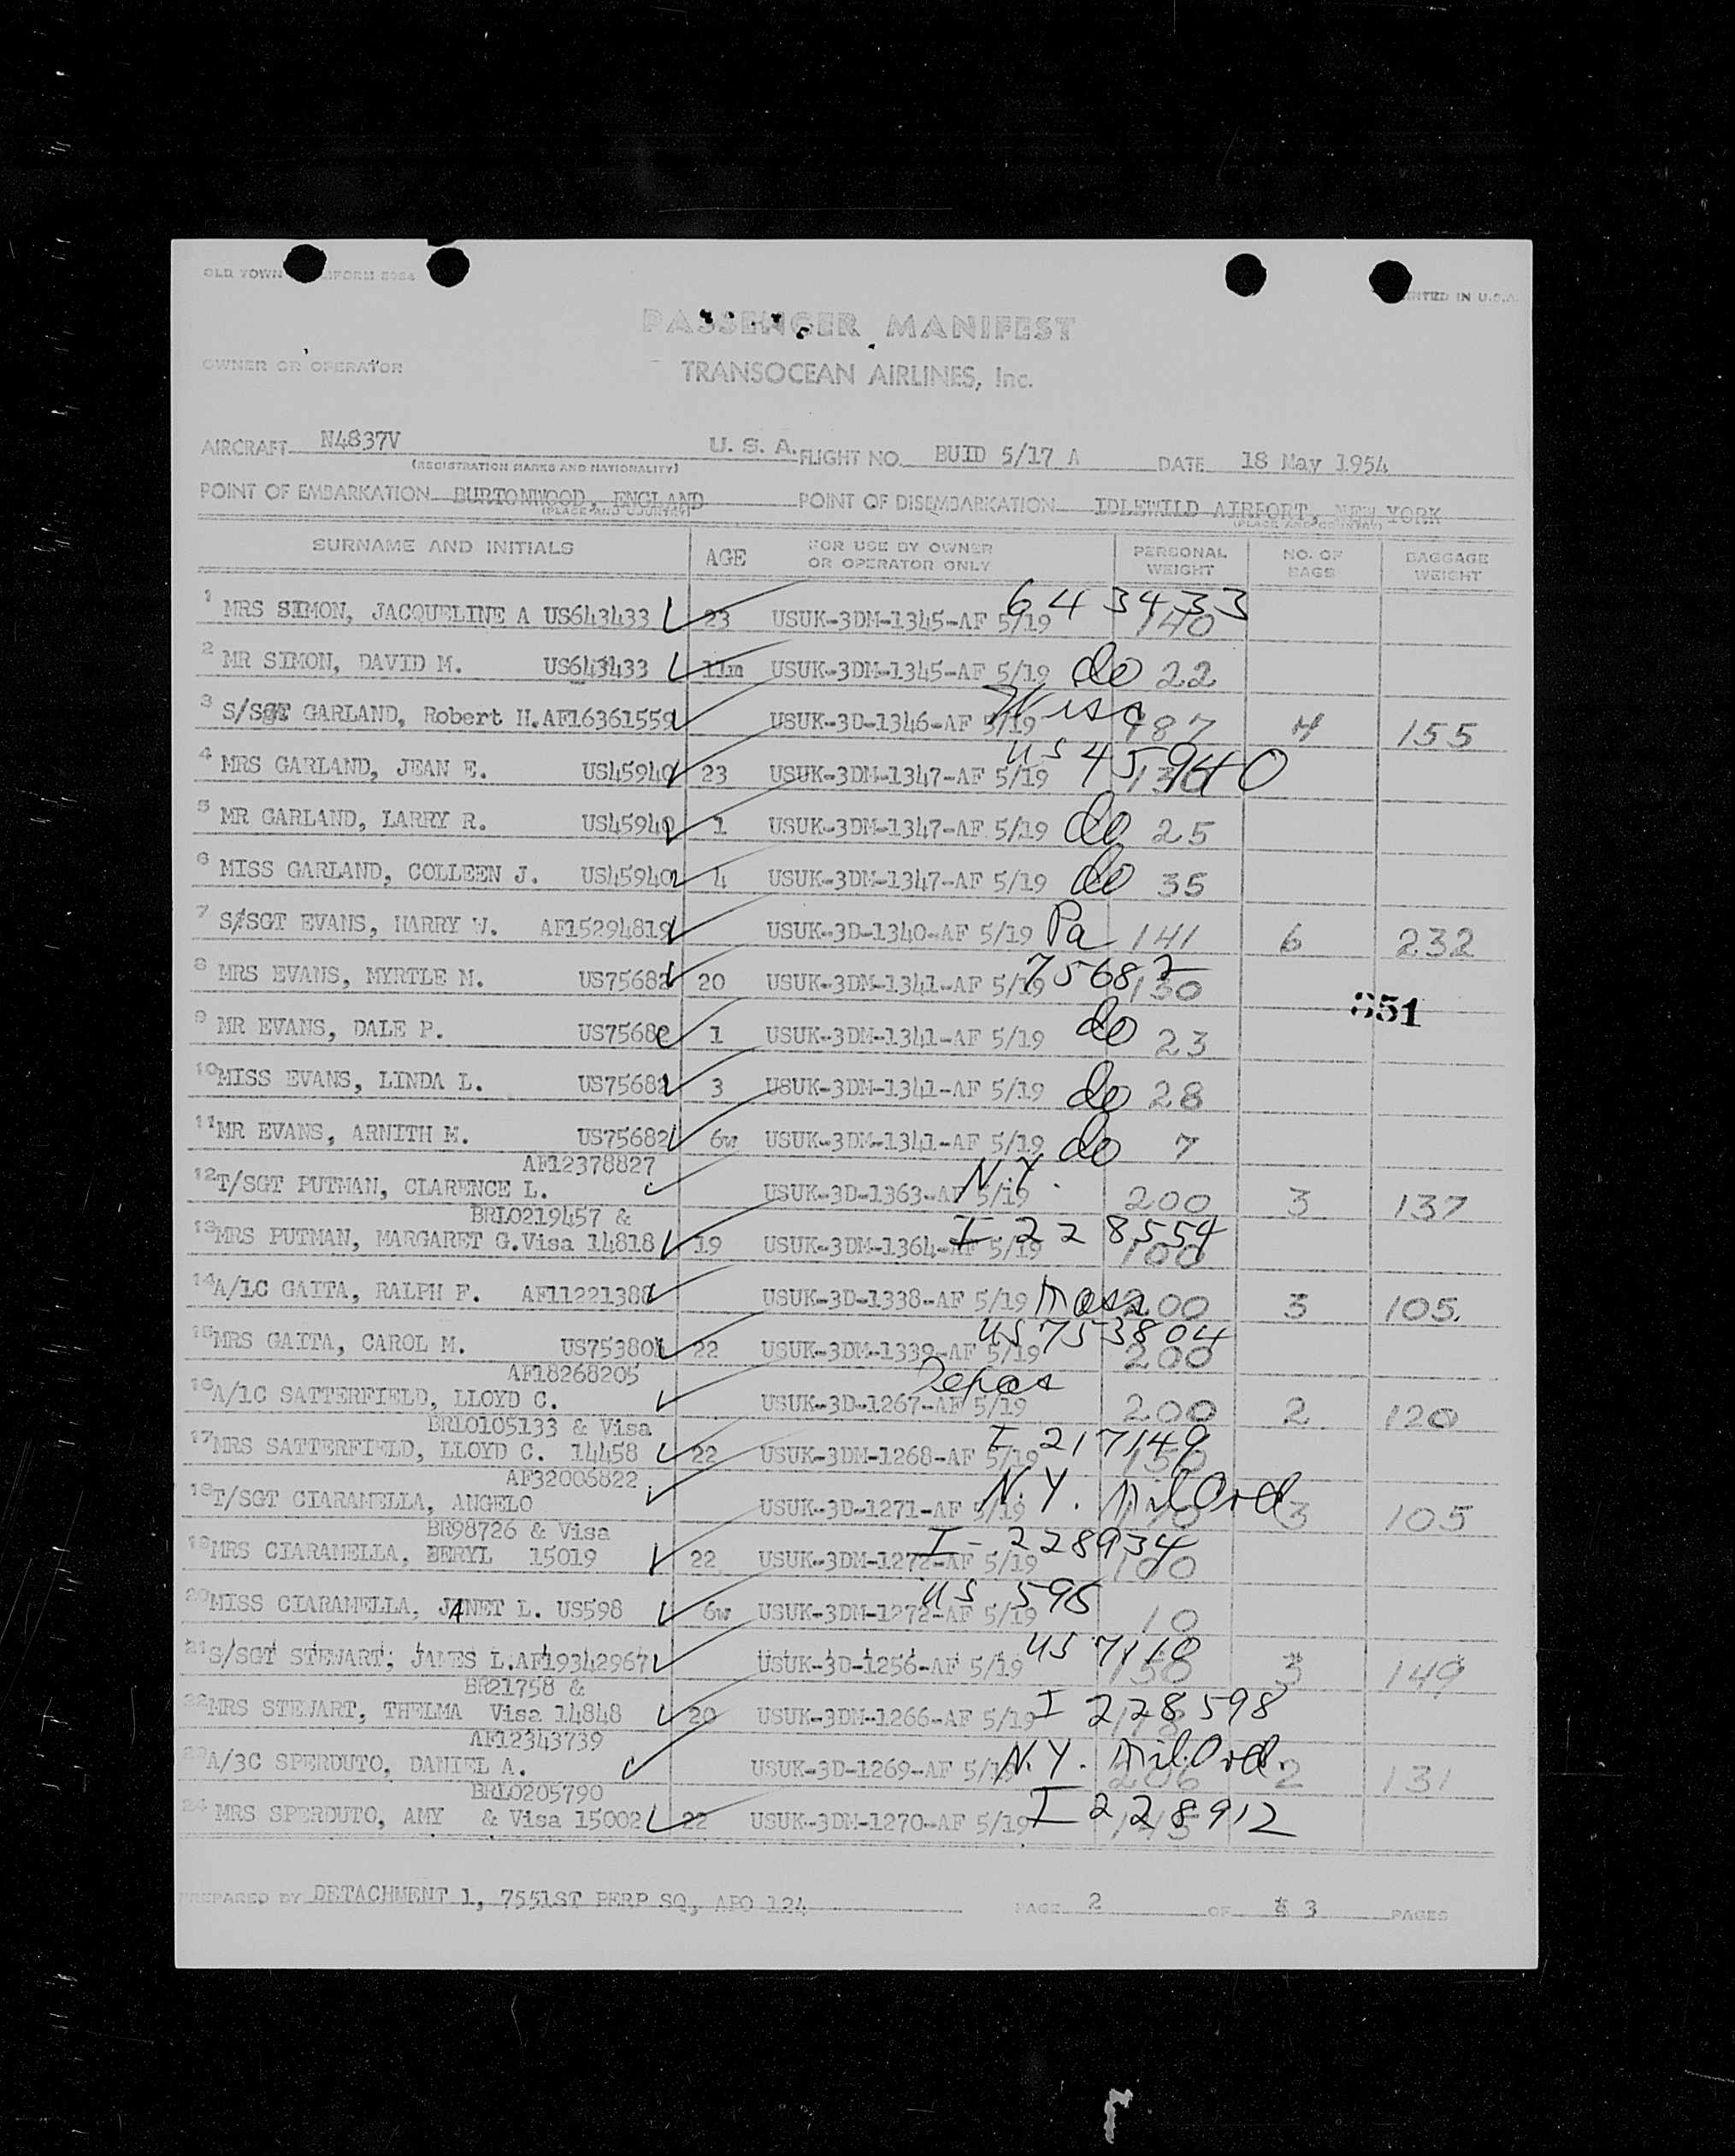 OLD TOWN IFORM
INTED IN U.S.A.
PASSENGER MANIFEST
OWNER OR OPERATOR TRANSOCEAN AIRLINES, Inc.
AIRCRAFT N4837V U. S. A. FLIGHT NO. BUID 5/17 A DATE 18 May 1954
(REGISTRATION MARKS AND NATIONALITY)
POINT OF EMBARKATION BURTONWOOD, ENGLAND POINT OF DISEMBARKATION IDLEWILD AIRPORT, NEW YORK
(PLACE AND COUNTRY) (PLACE AND COUNTRY)
SURNAME AND INITIALS AGE FOR USE BY OWNER OR OPERATOR ONLY PERSONAL WEIGHT NO. OF BAGS BAGGAGE WEIGHT
1 MRS SIMON, JACQUELINE A US643433 23 USUK-3DM-1345-AF 5/19 643433 140
2 MR SIMON, DAVID M. US643433 11m USUK-3DM-1345-AF 5/19 do 22
3 S/SGT GARLAND, Robert H. AF16361559 USUK-3D-1346-AF 5/19 Wisc 187 4 155
4 MRS GARLAND, JEAN E. US45940 23 USUK-3DM-1347-AF 5/19 US 45940 130
5 MR GARLAND, LARRY R. US45940 1 USUK-3DM-1347-AF 5/19 do 25
6 MISS GARLAND, COLLEEN J. US45940 4 USUK-3DM-1347-AF 5/19 do 35
7 S/SGT EVANS, HARRY W. AF15294819 USUK-3D-1340-AF 5/19 Pa 141 6 232
8 MRS EVANS, MYRTLE M. US75682 20 USUK-3DM-1341-AF 5/19 75682 130
851
9 MR EVANS, DALE P. US75682 1 USUK-3DM-1341-AF 5/19 do 23
10 MISS EVANS, LINDA L. US75682 3 USUK-3DM-1341-AF 5/19 do 28
11 MR EVANS, ARNITH M. US75682 6w USUK-3DM-1341-AF 5/19 do 7
AF12378827
12 T/SGT PUTMAN, CLARENCE L. USUK-3D-1363-AF 5/19 N.Y. 200 3 137
BRL0219457 &
13 MRS PUTMAN, MARGARET G. Visa 14818 19 USUK-3DM-1364-AF 5/19 I 228554 100
14 A/1C GAITA, RALPH F. AF11221388 USUK-3D-1338-AF 5/19 Mass 200 3 105.
15 MRS GAITA, CAROL M. US753804 22 USUK-3DM-1339-AF 5/19 US 753804 200
AF18268205
16 A/1C SATTERFIELD, LLOYD C. USUK-3D-1267-AF 5/19 Texas 200 2 120
BRL0105133 & Visa
17 MRS SATTERFIELD, LLOYD C. 14458 22 USUK-3DM-1268-AF 5/19 I 217149 150
AF32006822
18 T/SGT CIARAMELLA, ANGELO USUK-3D-1271-AF 5/19 N.Y. Mil Ord 3 105
BR98726 & Visa
19 MRS CIARAMELLA, BERYL 15019 22 USUK-3DM-1272-AF 5/19 I-228934 100
20 MISS CIARAMELLA, JANET L. US598 6w USUK-3DM-1272-AF 5/19 US 598 10
21 S/SGT STEWART, JAMES L. AF19342967 USUK-3D-1256-AF 5/19 US 7110 150 3 149
BR21758 &
22 MRS STEWART, THELMA Visa 14848 20 USUK-3DM-1266-AF 5/19 I 228598
AF12343739
23 A/3C SPERDUTO, DANIEL A. USUK-3D-1269-AF 5/19 N.Y. Mil. Ord. 206 2 131
BRL0205790
24 MRS SPERDUTO, AMY & Visa 15002 22 USUK-3DM-1270-AF 5/19 I 228912 145
PREPARED BY DETACHMENT 1, 7551ST PERP SQ, APO 124 PAGE 2 OF 3 PAGES